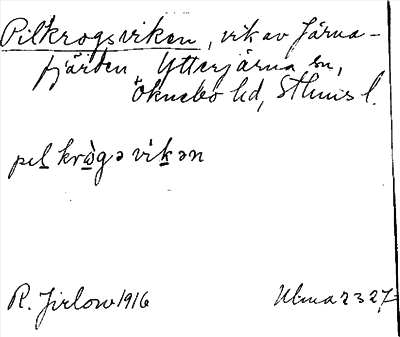 Pilkrogsviken, vik av Järna-
fjärden, Ytterjärna sn,
Öknebo hd, Sthlms l.
pil krògə vikən
R. Jirlow 1916
Ulma 2327